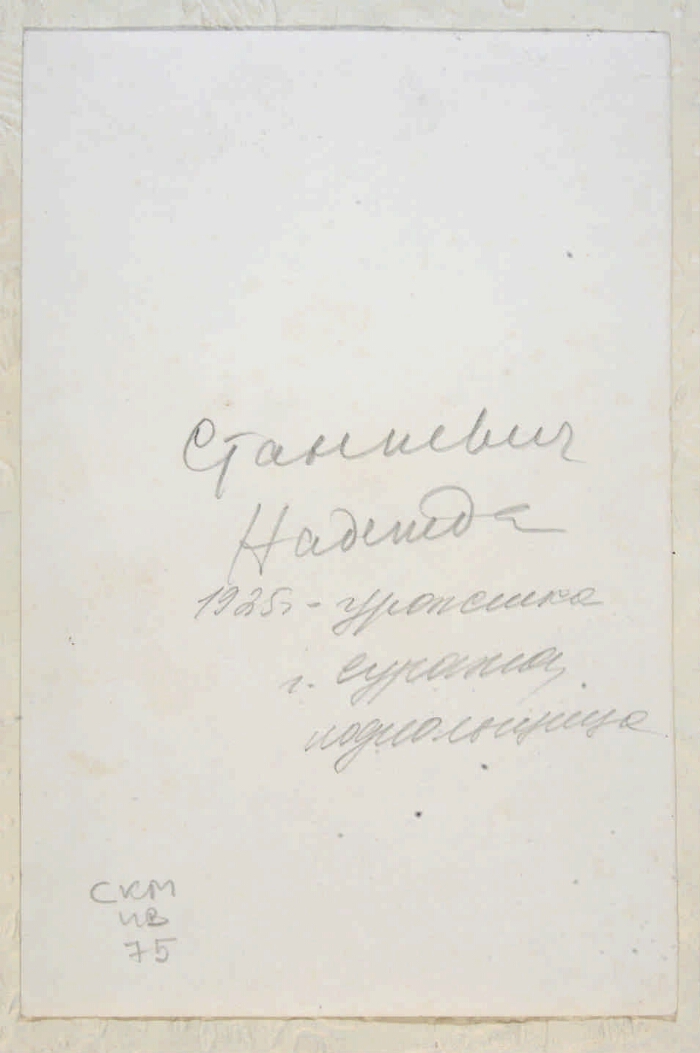 Станкевич
Надежда
1925г - уроженка
г. Суража,
подпольщица
СКМ
ИВ
75